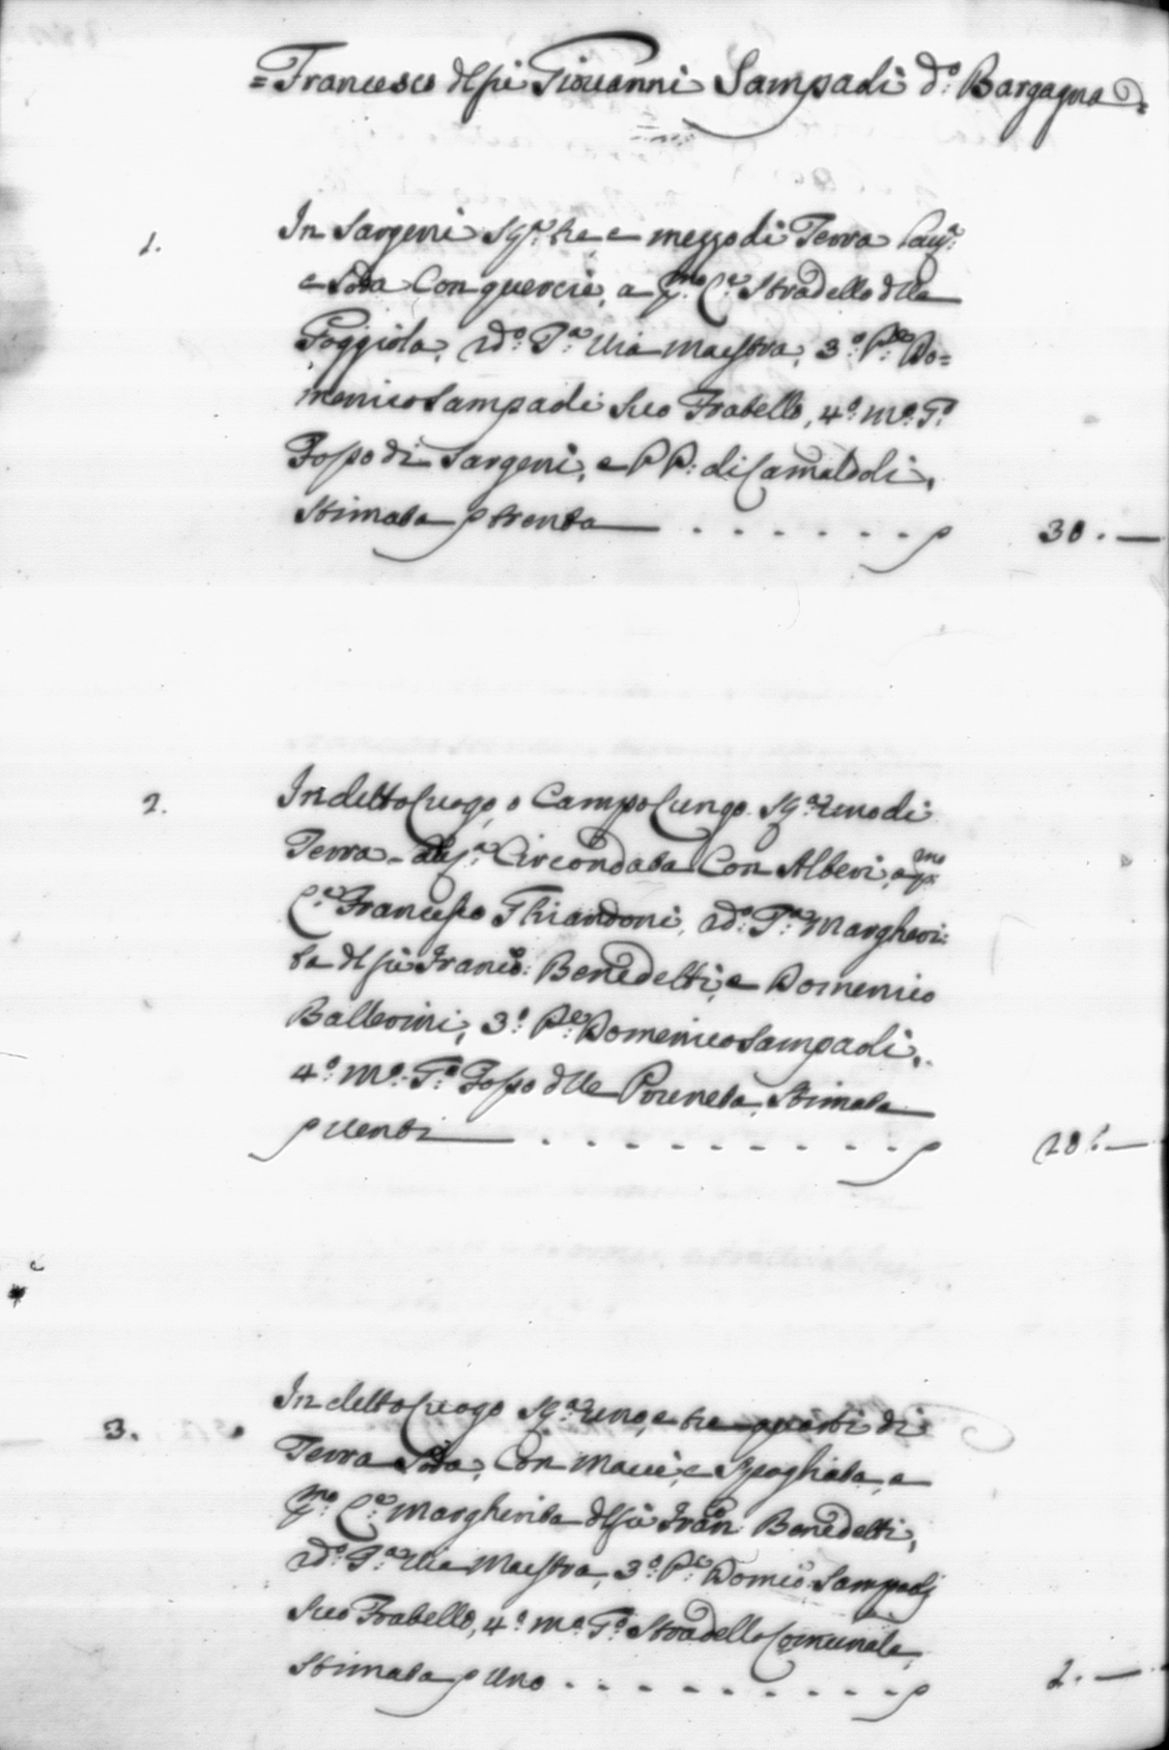 = Francesco dl fù Giovanni Sampaoli d:° Bargagna =
1.
In Sargeni Sg:ª tre e mezzo di Terra Lau:ª
e Soda Con quercie, a p:mo C:ª Stradello dlle
Poggiola, 2d:° T:ª Via Maestra, 3:° P:e Do=
menico Sampaoli Suo Fratello, 4:° M:° T:ª
Fosso di Sargeni, e PP: di Camaldoli,
Stimata p trenta . . . . . . p 30. —
2.
In detto Luogo, o Campo Lungo Sg:ª uno di
Terra Circondata Con Alberi, a p:mo
C:ª Francesco Ghiandoni, 2d:° T:ª Margheri:
ta dl fù Franc:° Benedetti, e Domenico
Ballerini, 3:° P:e Domenico Sampaoli,
4:° M:° T:ª Fosso dlle Stimata
p Venti . . . . . . . . . . p 20. —
3.
In detto Luogo Sg:ª uno, e tre quarti di
Terra Soda, Con Macie, e Spogliata, a
p:mo C:ª Margherita dl fù Fran: Benedetti,
2d:° T:ª Via Maestra, 3:° P:e Dom:co Sampaoli
Suo Fratello, 4:° M:° T:ª Stradello Comunale,
Stimata p Uno . . . . . . . . . p